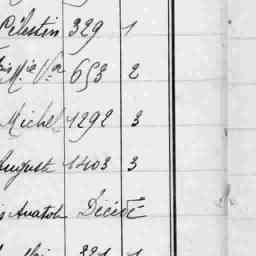 Célestin 329 1
653 2
Michel 1292 3
August 1403 3
Anatole Décédé
1